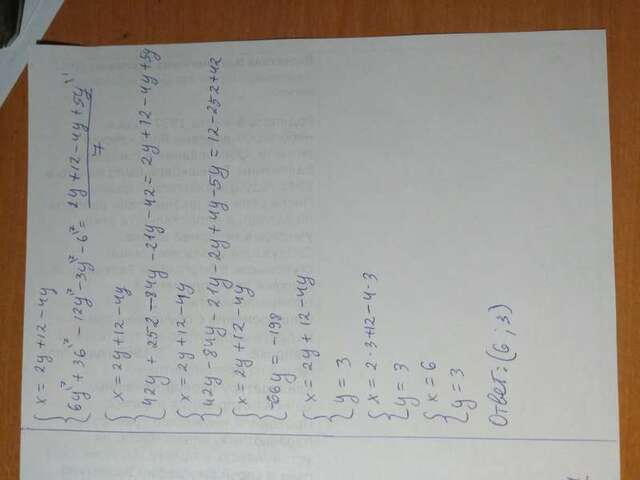 { x = 2y + 12 - 4y
{ 6y^(7 + 36^(7 - 12y^(7 - 3y^(7 - 6^(7 = (2y + 12 - 4y + 5y^(1)/7
{ x = 2y + 12 - 4y
{ 42y + 252 - 84y - 21y - 42 = 2y + 12 - 4y + 5y
{ x = 2y + 12 - 4y
{ 42y - 84y - 21y - 2y + 4y - 5y = 12 - 252 + 42
{ x = 2y + 12 - 4y
{ -66y = -198
{ x = 2y + 12 - 4y
{ y = 3
{ x = 2·3 + 12 - 4·3
{ y = 3
{ x = 6
{ y = 3
Ответ: (6; 3)